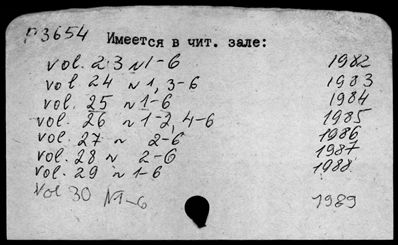 П3654 Имеется в чит. зале:
vol. 23 N1-6 1982
vol. 24 N1, 3-6 1983
vol. 25 N1-6 1984
vol. 26 N1-2, 4-6 1985
vol. 27 N 2-6 1986
vol. 28 N 2-6 1987
vol. 29 N 1-6 1988
vol 30 N1-6 1989